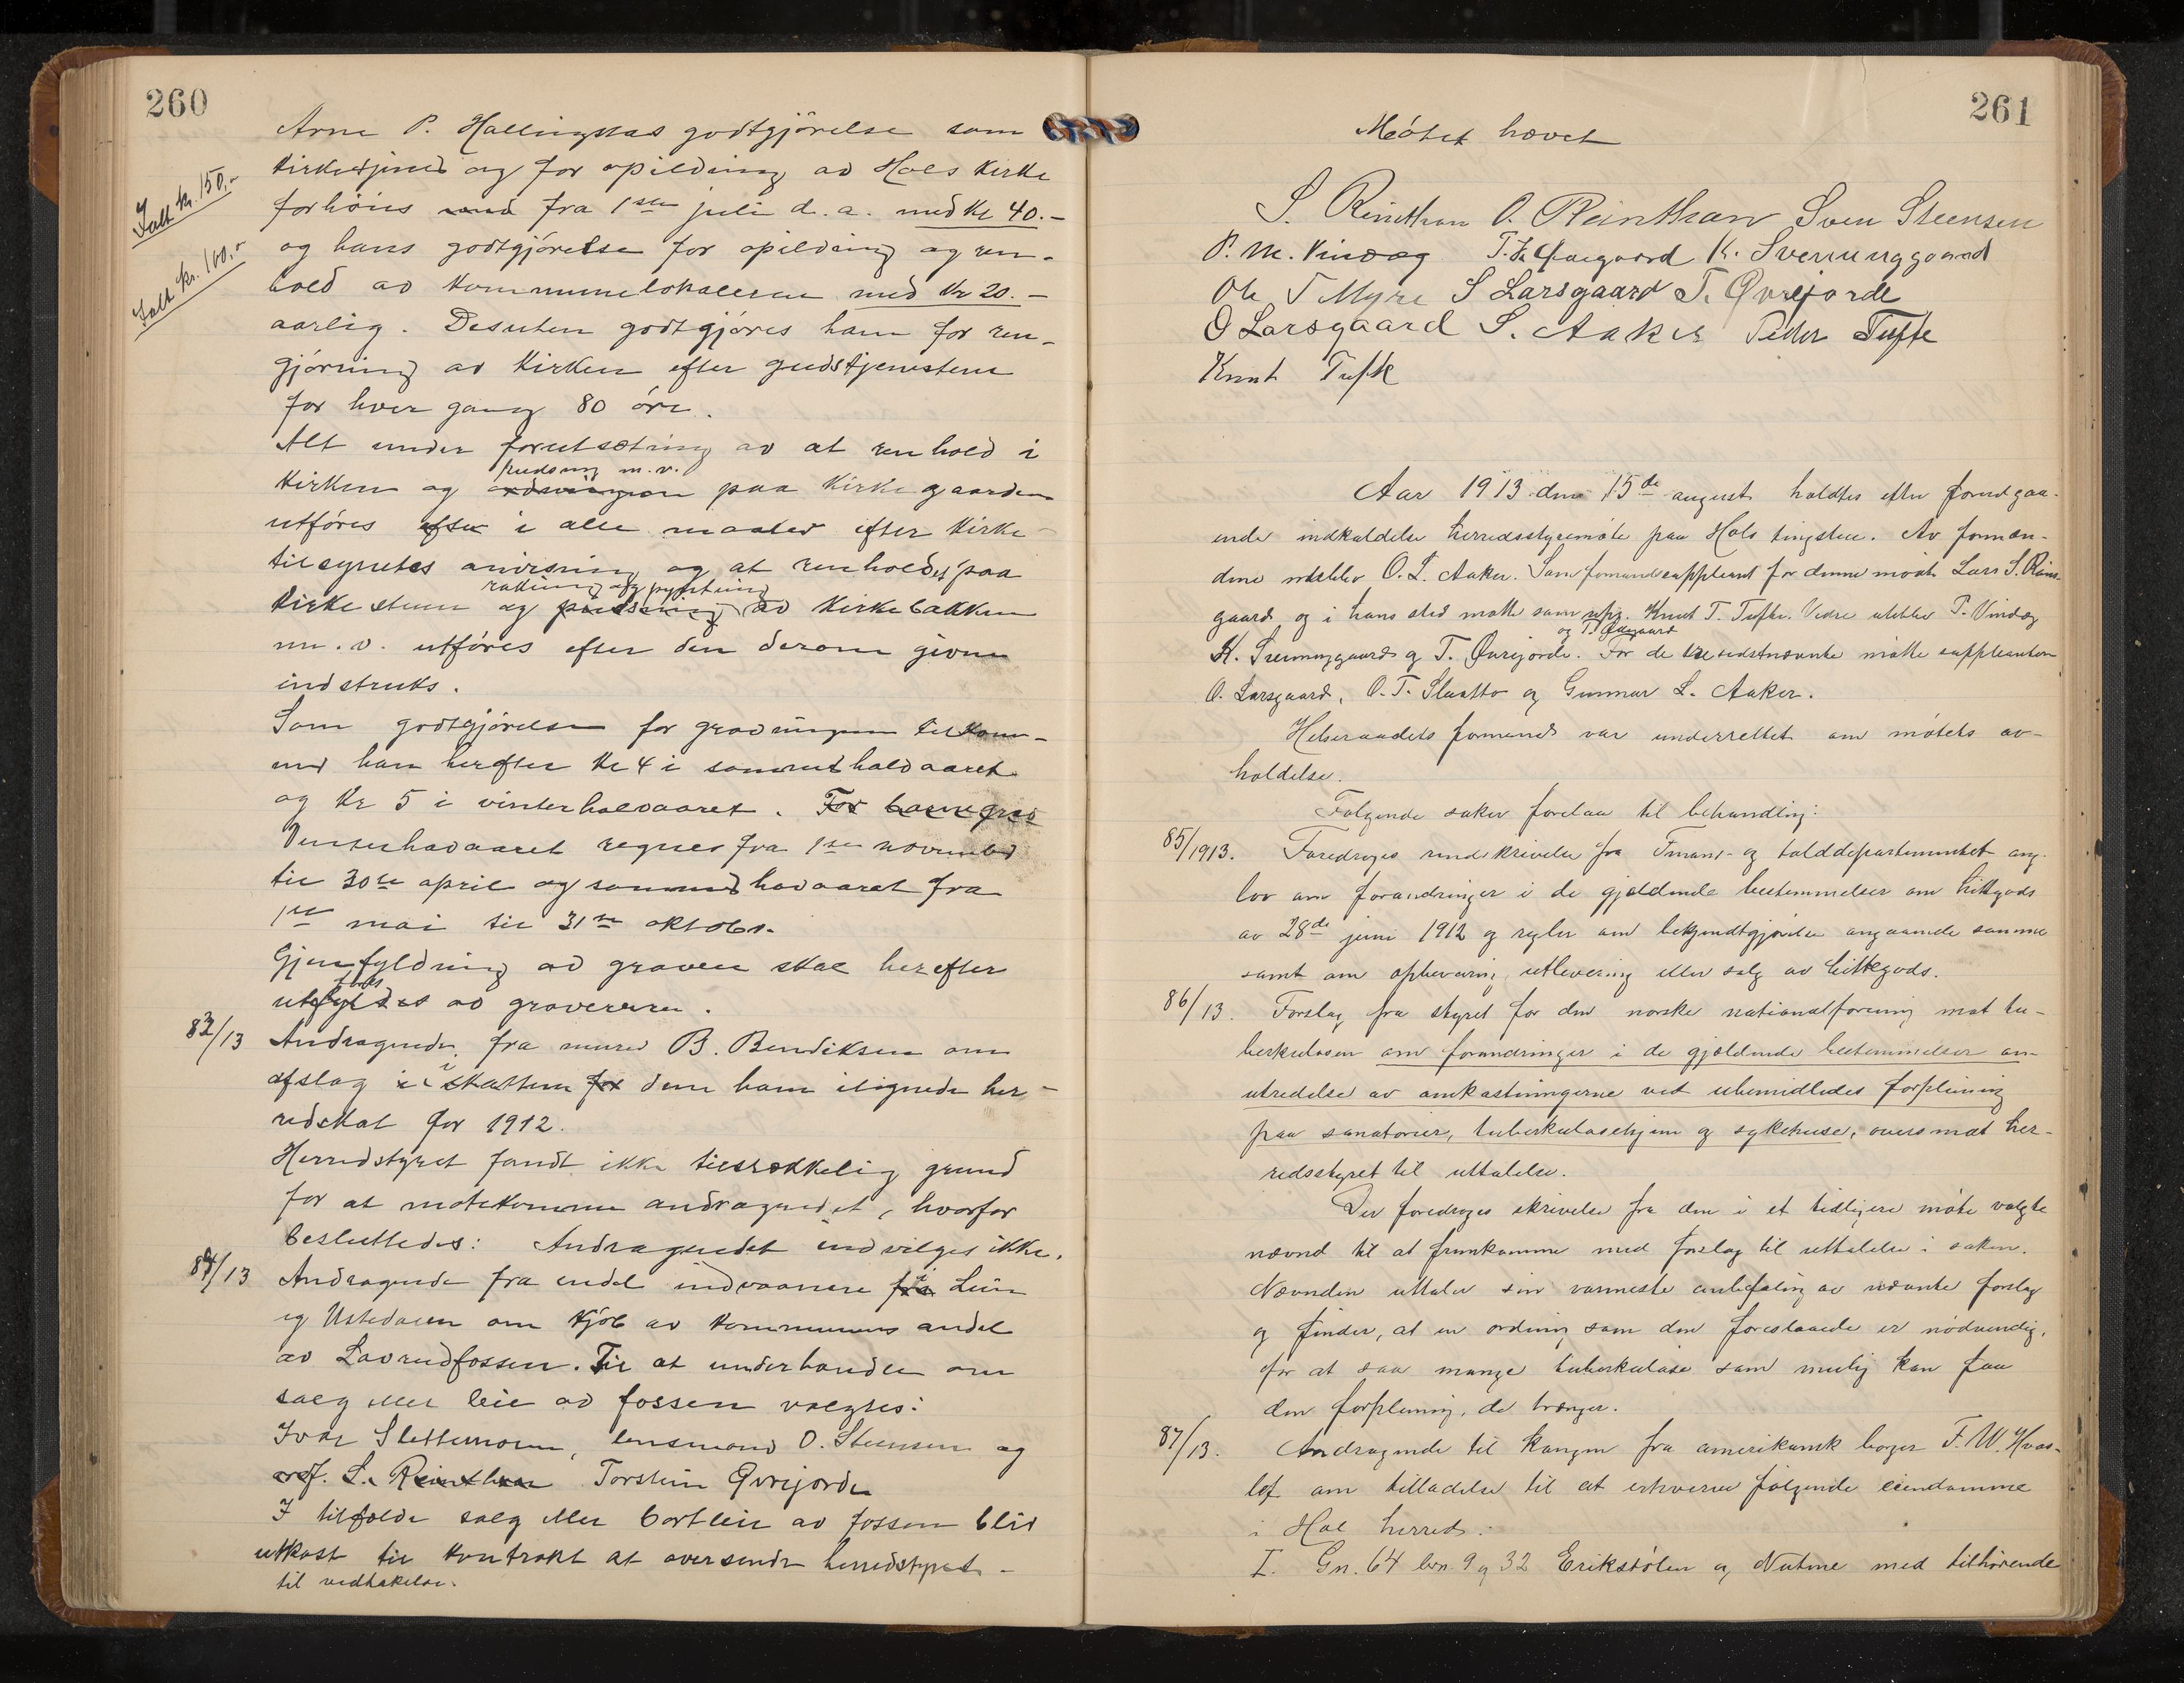 260
Arne P. Hallingstas godtgjörelse som
kirketjener og for opildning av Hols kirke
forhöies med fra 1ste juli d.a. med kr 40.-
Ialt kr. 150,-
og hans godtgjörelse for opildning og ren-
hold av kommunelokalerne med kr 20.-
Ialt kr. 100,-
aarlig. Desuten godtgjöres ham for ren-
gjörning av kirken efter gudstjenestene
for hver gang 80 öre.
Alt under forutsætning av at renhold i
pudsning m.v.
kirken og paa kirkegaarden
utföres efter i alle maater efter kirke-
tilsynets anvisning og at renholdet paa
rakning og pyntning
kirkestuen og pudsning av kirkebakken
m.v. utföres efter den derom givne
indstruks.
Som godtgjörelse for gravningen tilkom-
mer han herefter kr 4 i sommerhalvaaret
og kr 5 i vinterhalvaaret. For barnegrav
Vinterhavaaret regnes fra 1ste november
til 30te april og sommerhavaaret fra
1ste mai til 31te oktober.
Gjenfyldning av graven skal herefter
föres
utfyldes av graveren.
83/13 Andragende fra murer B. Bendiksen om
afslag i skatten for dem ham ilignede her-
redskat for 1912.
Herredstyret fandt ikke tilstrækkelig grund
for at imötekomme andragendet, hvorfor
besluttedes: Andragendet indvilges ikke.
84/13 Andragende fra endel indvaanere fra Lien
og Ustedalen om kjöb av kommunens andel
av Lavrudfossen. Til at underhandle om
salg eller leie av fossen valgtes:
Ivar Slettemoen, lensmand O. Steensen og
ordf. S. Reinthon Torstein Qvrejorde
I tilfælde salg eller bortleie av fossen blir
utkast til kontrakt at oversende herredstyret
til vedtakelse.
261
Mötet hævet
S. Reinthon O. Reinthon Sven Steensen
P. M. Vindeg T. K. Øaegaard K. Sverrunggaard
Ole T Myre S Larsgaard T. Qvrejorde
O Larsgaard S. Aaker Peder Tufte
Knut Tufte
Aar 1913 den 15de august holdtes efter forutgaa-
ende indkaldelse herredsstyremöte paa Hols tingstue. Av formæn-
dene uteblev O. L. Aaker. Som formandssuppleant for denne mötte Lars S. Reins-
gaard og i hans sted mötte som rep. Knut T. Tufte. Videre uteblev P. Vindeg
og T. Ødegaard
K. Sverrunggaard og T. Qvrejorde. For de tre sidstnævnte mötte suppleanten
O. Larsgaard, O. T. Slaatto og Gunnar L. Aaker.
Helseraadets formand var underrettet om mötets av-
holdelse.
Fölgende saker forelaa til behandling:
85/1913. Foredroges rundskrivelse fra Finans- og tolddepartementet ang.
lov om forandringer i de gjældende bestemmelser om hittegods
av 28de juni 1912 og regler om bekjendtgjörelse angaaende samme
samt om opbevaring, utlevering eller salg av hittegods.
86/13. Forslag fra styret for den norske nationalforening mot tu-
berkulosen om forandringer i de gjældende bestemmelser om
utredelse av omkostningerne ved ubemidledes forpleining
paa sanatorier, tuberkulosehjem og sykehuse, oversendt her-
redsstyret til uttalelse.
Der foredroges skrivelse fra den i et tidligere möte valgte
nævnd til at fremkomme med forslag til uttalelse i saken.
Nævnden uttaler sin varmeste anbefaling av nævnte forslag
og finder, at en ordning som den foreslaaede er nödvendig,
for at saa mange tuberkulose som mulig kan faa
den forpleining, de trænger.
87/13. Andragende til kongen fra amerikansk borger F. W. Hvos-
lef om tilladelse til at erhverve fölgende eiendomme
i Hol herred:
I. Gn. 64 brn. 9 og 32 Erikstölen og Nutene med tilhörende